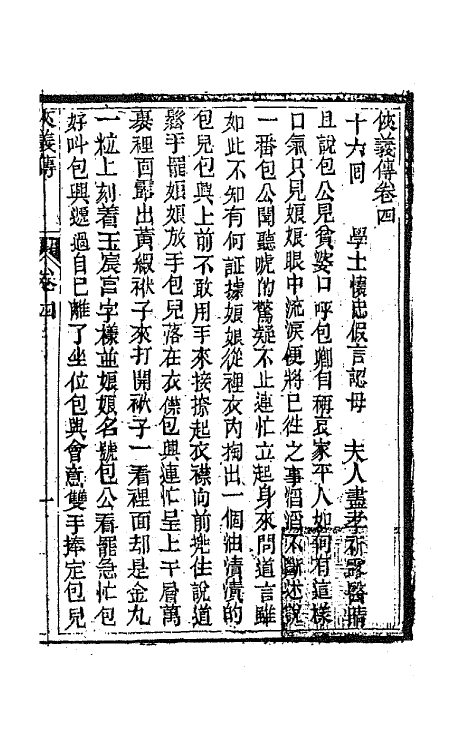 俠義傳卷四
十六回　學士懷忠假言認母　夫人盡孝祈露醫睛
且說包公見貧婆口呼包卿自稱哀家平人如何有這樣
口氣只見娘娘眼中流淚便將已徃之事滔滔不斷述說
一番包公聞聽唬的驚疑不止連忙立起身來問道言雖
如此不知有何証據娘娘從裡衣內掏出一個油漬漬的
包兒包興上前不敢用手來接撩起衣襟向前兠住說道
鬆手罷娘娘放手包兒落在衣襟包興連忙呈上千層萬
裹裡面露出黃緞袱子來打開袱子一看裡面却是金丸
一粒上刻着玉宸宮字樣並娘娘名號包公看罷急忙包
好叫包興遞過自己離了坐位包興會意雙手捧定包兒
俠義傳　卷四　一